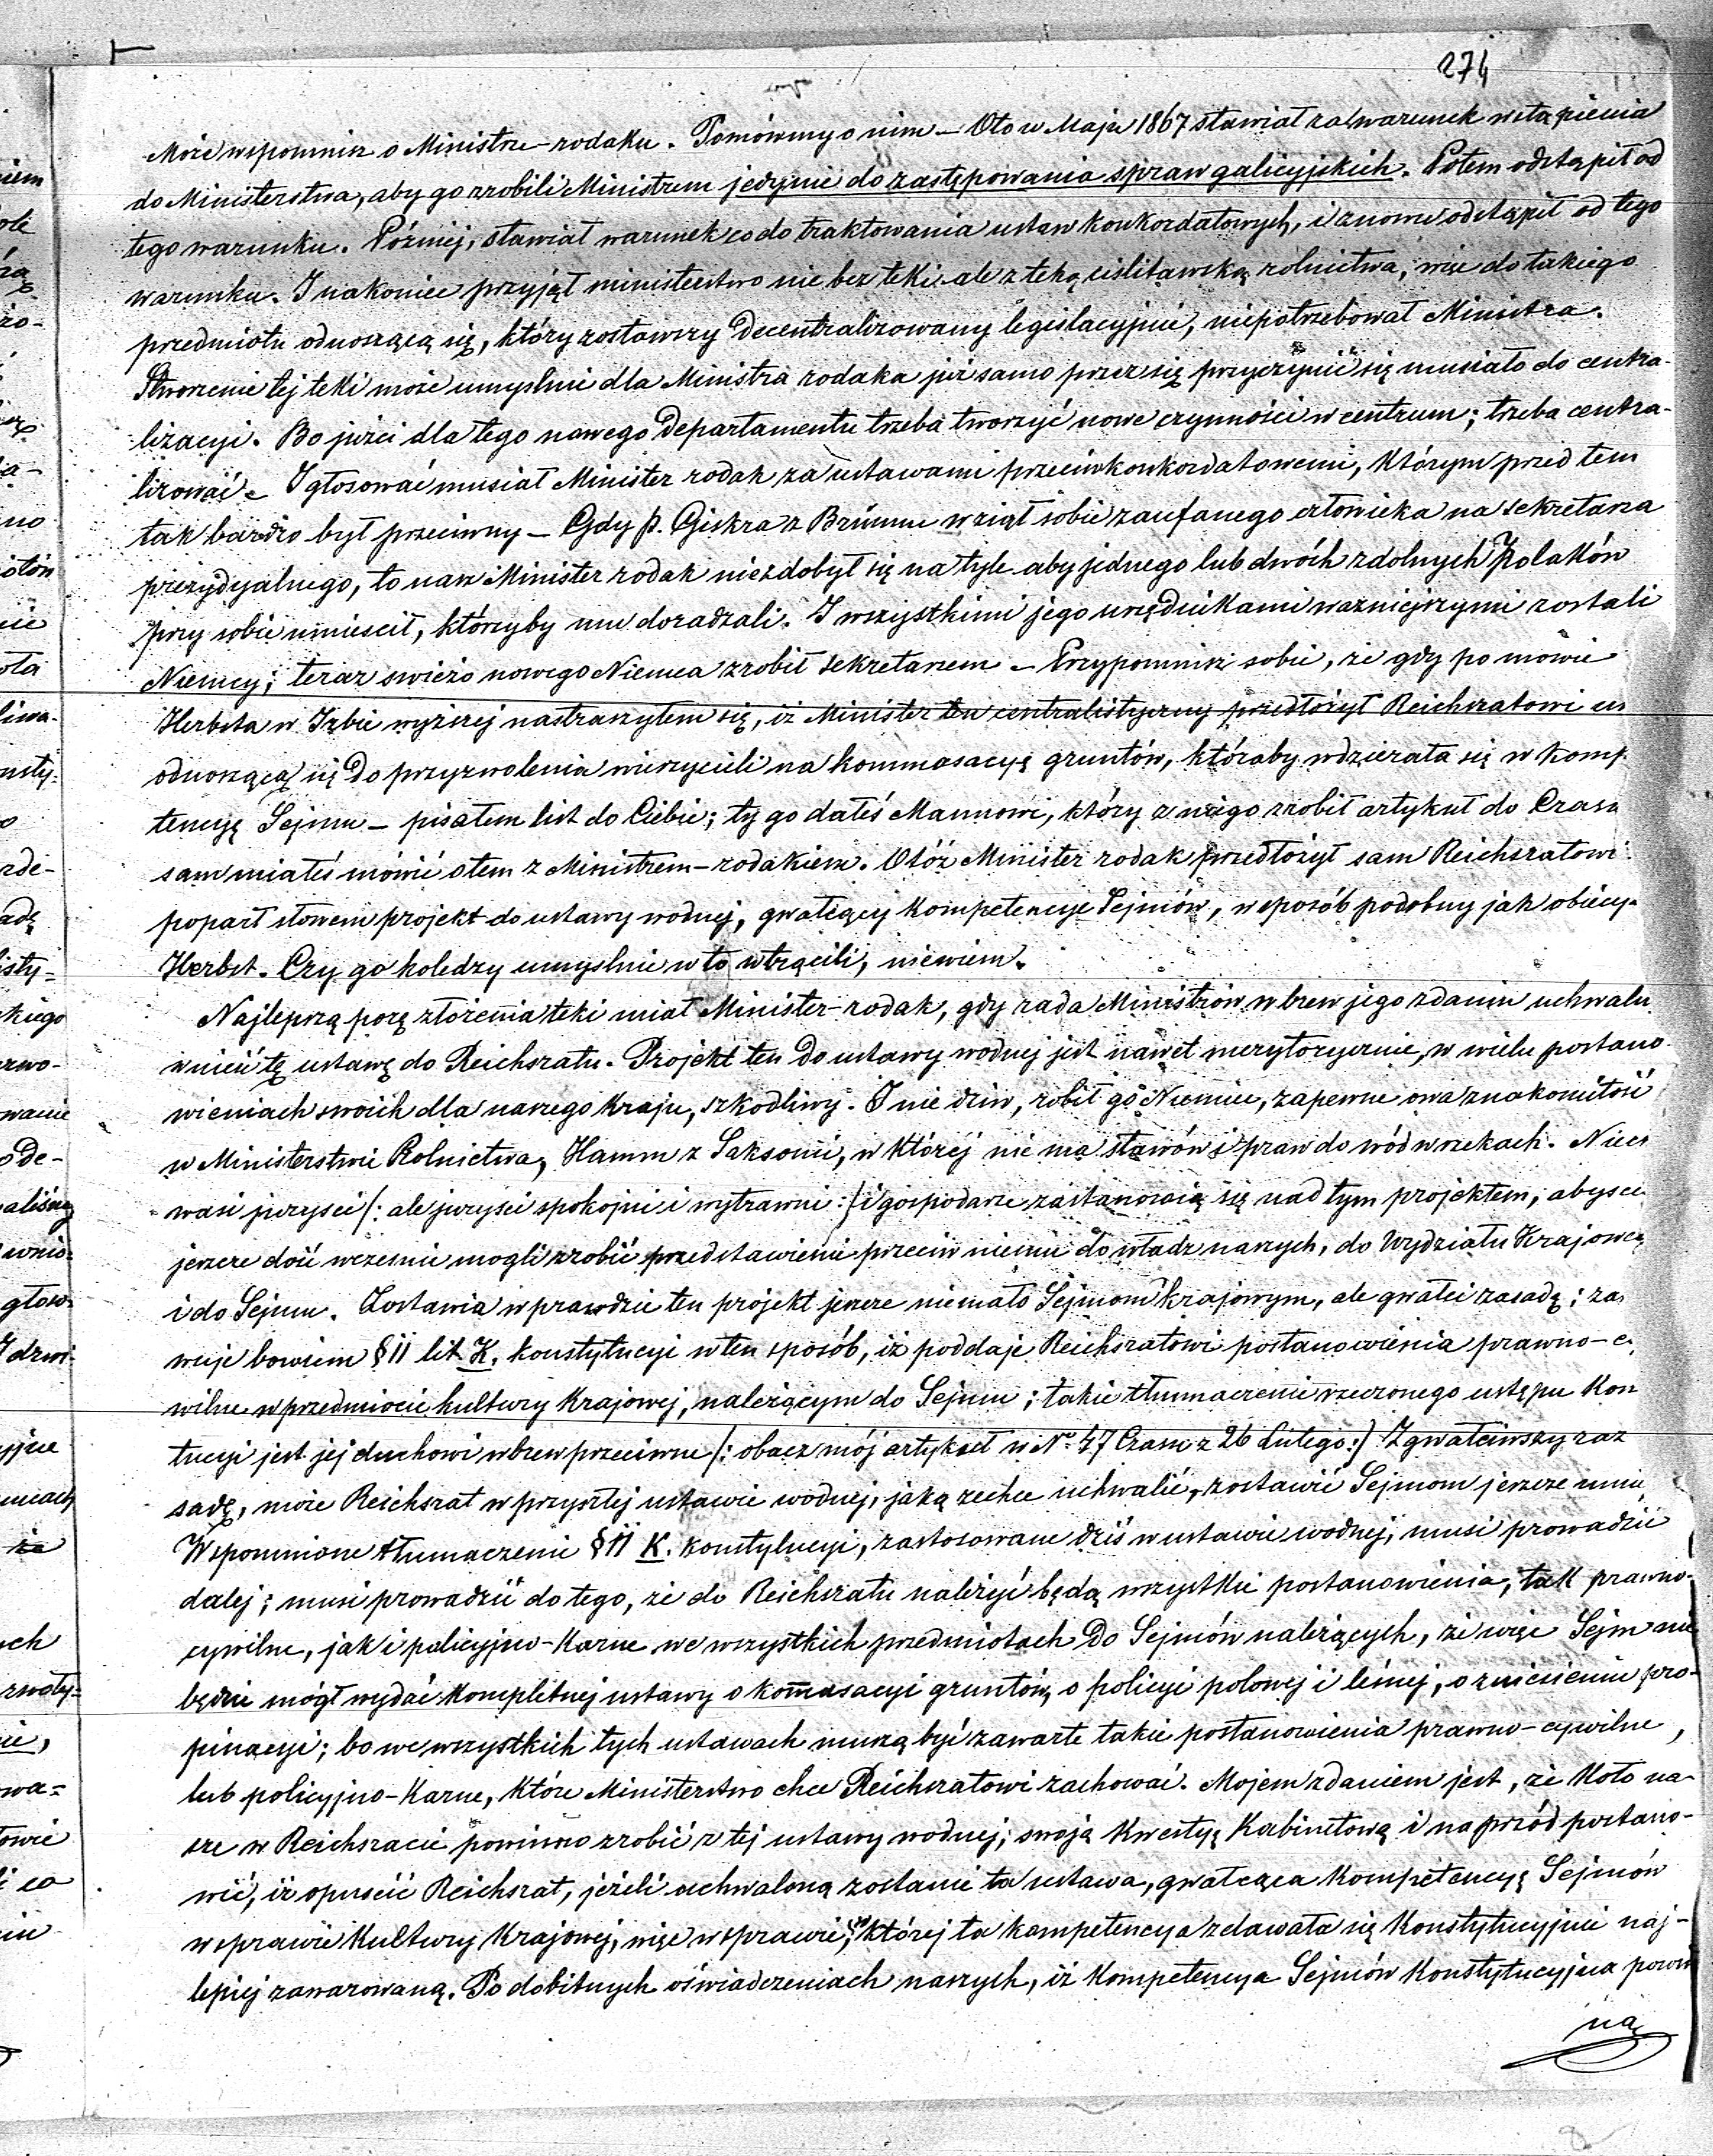 274
Może wspomnisz o Ministrze-rodaku. Pomówmy o nim — Oto w Maju 1867 stawiał za warunek wstąpienia
do Ministerstwa, aby go zrobili Ministrem jedynie do zastępowania spraw galicyjskich. Potem odstąpił od
tego warunku. Później, stawiał warunek co do traktowania ustaw konkordatowych, i znowu odstąpił od tego
warunku. I nakoniec przyjął ministerstwo nie bez teki ale z teką cislitawską rolnictwa, więc do takiego
przedmiotu odnoszącą się, który zostawszy decentralizowany legislacyjnie, niepotrzebował Ministra.
Stworzenie tej teki może umyślnie dla Ministra rodaka już samo przez się przyczynić się musiało do centra-
lizacyi. Bo jużci dla tego nowego Departamentu trzeba tworzyć nowe czynności w centrum; trzeba centra-
lizować. I głosować musiał Minister rodak za ustawami przeciwkonkordatowemi, którym przed tem
tak bardzo był przeciwny — Gdy p. Giskra z Brünnu wziął sobie zaufanego człowieka na sekretarza
prezydyalnego, to nasz Minister rodak niezdobył się na tyle aby jednego lub dwóch zdolnych Polaków
przy sobie umieścił, którzyby mu doradzali. I wszystkimi jego urzędnikami ważniejszymi zostali
Niemcy; teraz świeżo nowego Niemca zrobił sekretarzem — Przypomnisz sobie, że gdy po mowie
Herbsta w Izbie wyższej nastraszyłem się, iż Minister ten centralistyczny przedłożył Reichsratowi us
odnoszącą się do przyzwolenia wierzycieli na kommasacyę gruntów, któraby wdzierała się w kompe
tencyę Sejmu — pisałem list do Ciebie; ty go dałeś Mannowi, który z niego zrobił artykuł do Czasu
sam miałeś mówić o tem z Ministrem-rodakiem. Otóż Minister rodak przedłożył sam Reichsratowi
poparł słowem projekt do ustawy wodnej, gwałcący kompetencye Sejmów, w sposób podobny jak obiecy-
Herbst. Czy go koledzy umyślnie w to wtrącili, niewiem.
Najlepszą porę złożenia teki miał Minister-rodak, gdy rada Ministrów wbrew jego zdaniu uchwalu
wnieść tę ustawę do Reichsratu. Projekt ten do ustawy wodnej jest nawet merytorycznie, w wielu postano-
wieniach swoich dla naszego kraju, szkodliwy. I nie dziw, robił go Niemiec, zapewne owa znakomitość
w Ministerstwie Rolnictwa, Hamm z Saksonii, w której nie ma stawów i praw do wód w rzekach. Niech
wasi juryści /: ale juryści spokojni i wytrawni :/ i gospodarze zastanowią się nad tym projektem, abyście
jeszcze dość wcześnie mogli zrobić przedstawienie przeciw niemu do władz naszych, do Wydziału Krajoweg
i do Sejmu. Zostawia wprawdzie ten projekt jeszcze niemało Sejmom krajowym, ale gwałci zasadę; za
wuje bowiem § 11 lit. K. konstytucyi w ten sposób, iż poddaje Reichsratowi postanowienia prawno-c
wilne w przedmiocie kultury krajowej, należącym do Sejmu; takie tłumaczenie rzeczonego ustępu kon
tucyi jest jej duchowi wbrew przeciwne /: obacz mój artykuł w No. 47 Czasu z 26 Lutego :/ Zgwałciwszy raz
sadę, może Reichsrat w przyszłej ustawie wodnej, jaką zechce uchwalić, zostawić Sejmom jeszcze mnie
Wspomnione tłumaczenie § 11 K. konstytucyi, zastosowane dziś w ustawie wodnej, musi prowadzić
dalej; musi prowadzić do tego, że do Reichsratu należyć będą wszystkie postanowienia, tak prawno-
cywilne, jak i policyjno-karne we wszystkich przedmiotach do Sejmów należących, że więc Sejm nie
będzie mógł wydać kompletnej ustawy o komasacyi gruntów, o policyi polowej i leśnej, o zniesieniu pro-
pinacyi; bo we wszystkich tych ustawach muszą być zawarte takie postanowienia prawno-cywilne,
lub policyjno-karne, które Ministerstwo chce Reichsratowi zachować. Mojem zdaniem jest, że Koło na-
sze w Reichsracie powinno zrobić z tej ustawy wodnej, swoją kwestyę kabinetową i naprzód postano-
wić, iż opuścić Reichsrat, jeżeli uchwaloną zostanie ta ustawa, gwałcąca kompetencyę Sejmów
w sprawie kultury krajowej, więc w sprawie, w której ta kompetencya zdawała się konstytucyjnie naj-
lepiej zawarowaną. Po dobitnych oświadczeniach naszych, iż kompetencya Sejmów konstytucyjna powin
na